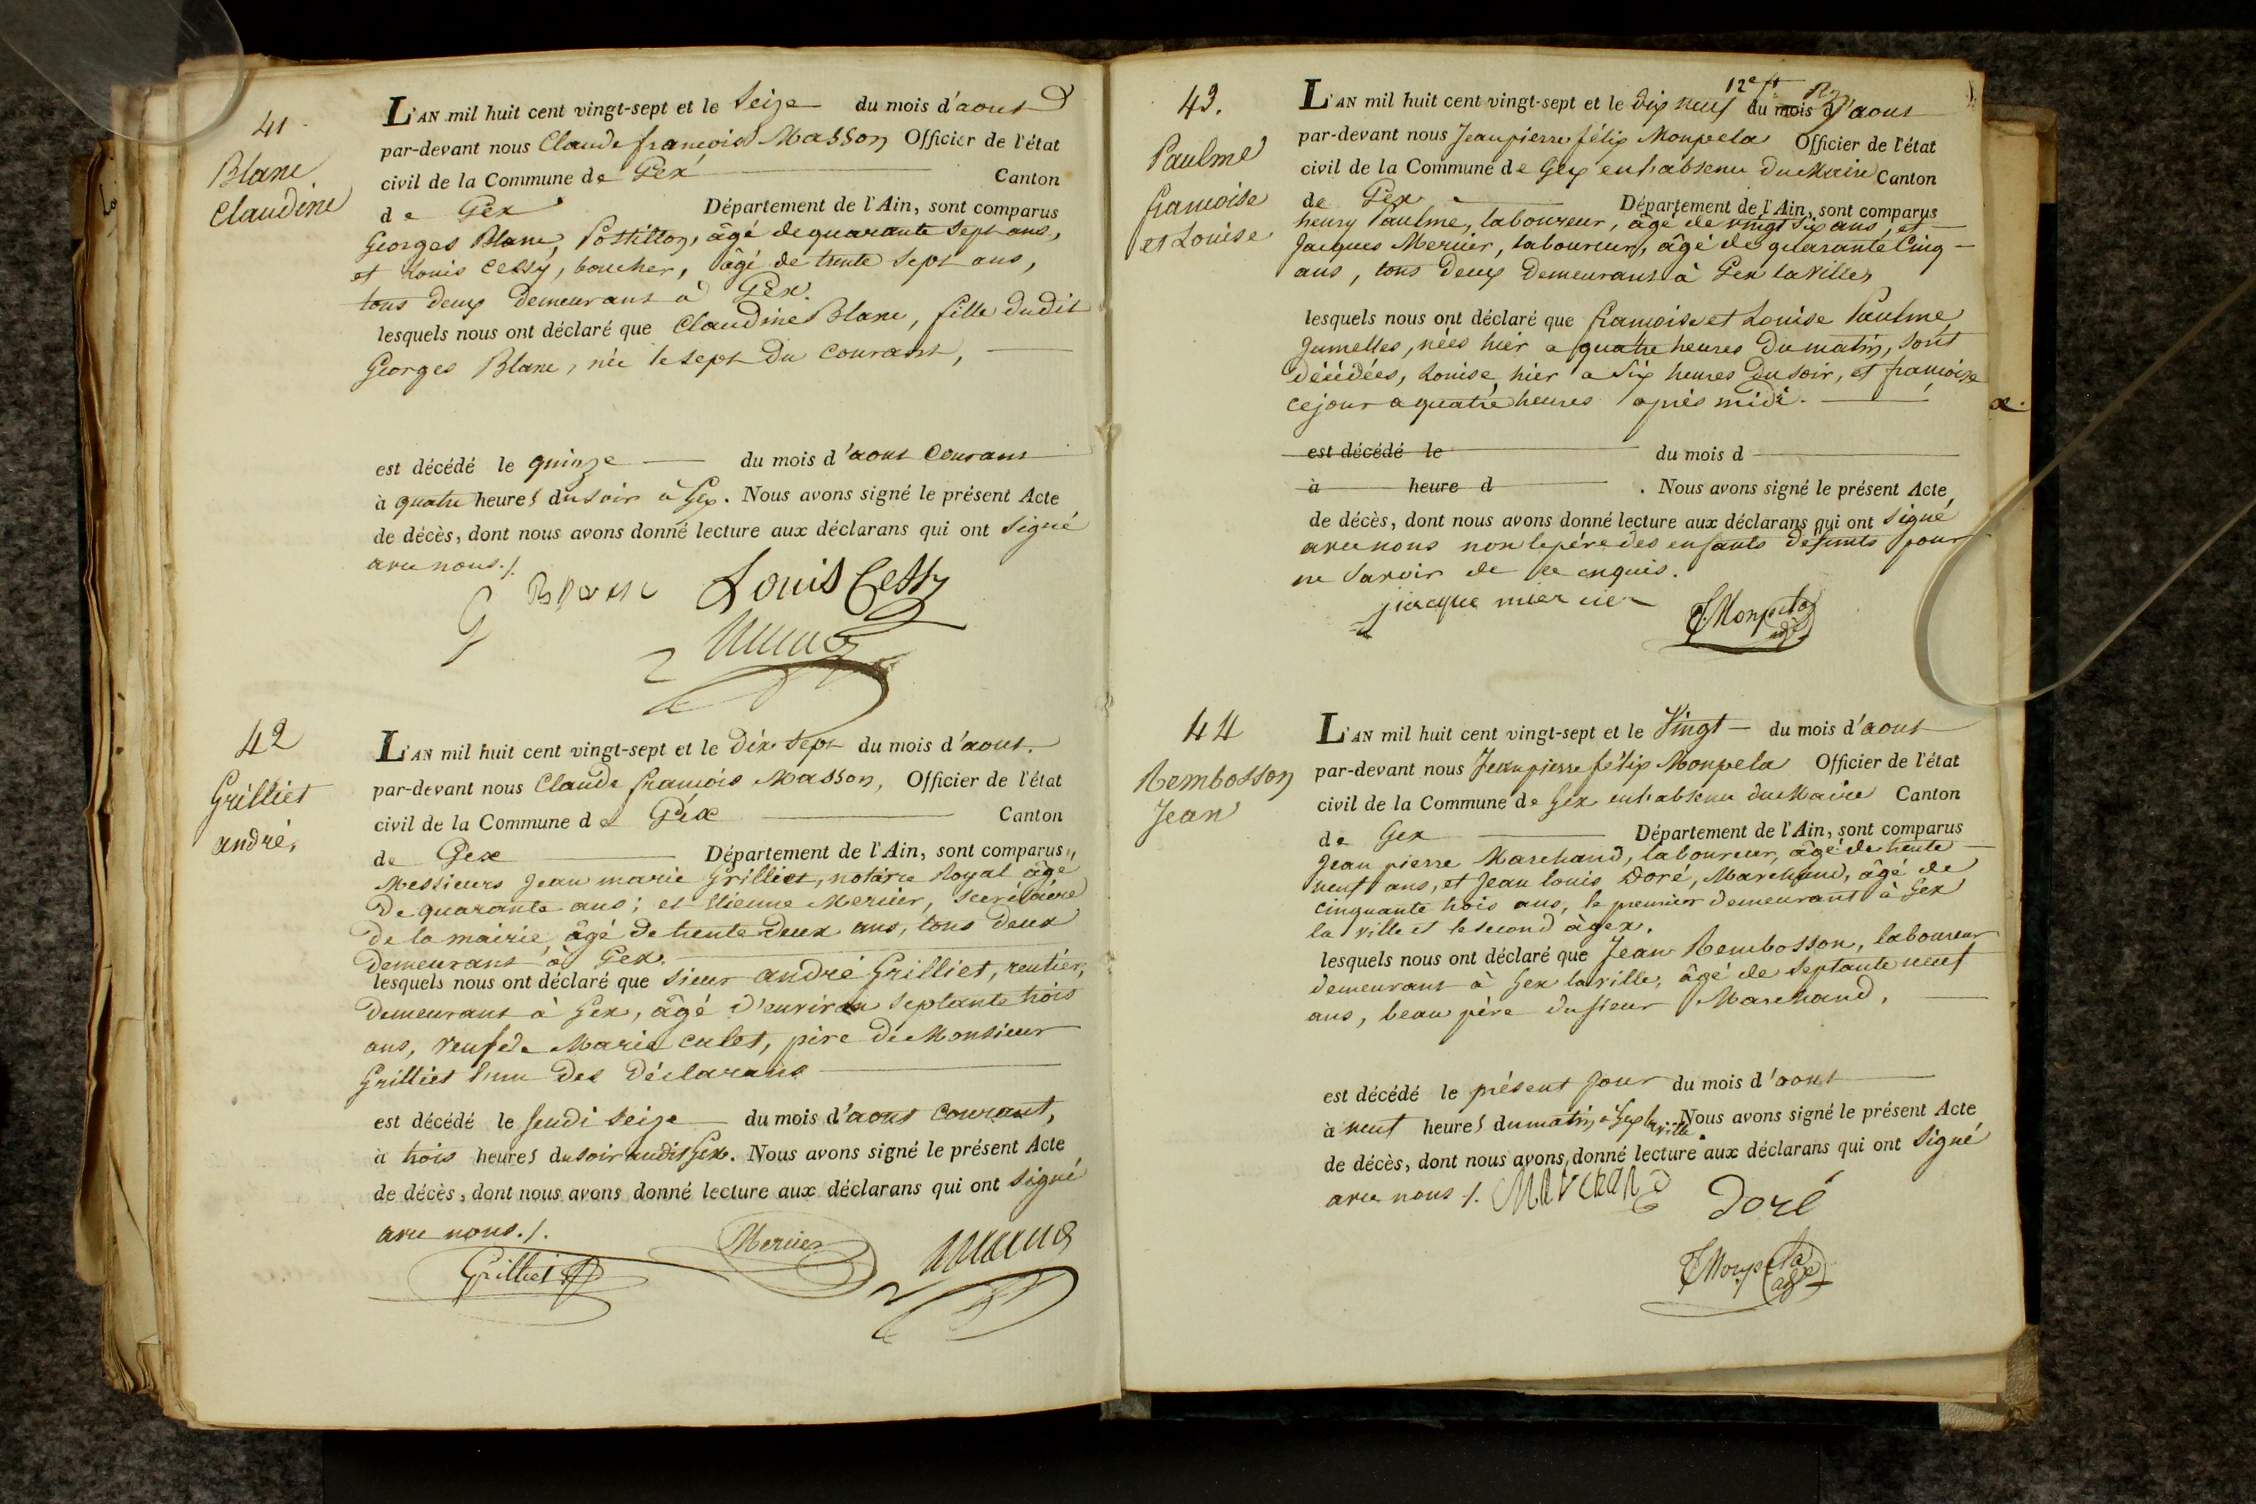 41.
Blanc
Claudine
L'AN mil huit cent vingt-sept et le Seize du mois d'aout
par-devant nous Claude françois Masson Officier de l'état
civil de la Commune de Géx Canton
de Gex Département de l'Ain, sont comparus
Georges Blanc, Postillon, âgé de quarante Sept ans,
et Louis Cessy, boucher, âgé de trente Sept ans,
tous deux Demeurant à Gex.
lesquels nous ont déclaré que Claudine Blanc, fille dudit
Georges Blanc, née le sept du Courant,
est décédé le quinze du mois d'aout Courant
à quatre heures du soir à Gex. Nous avons signé le présent Acte
de décès, dont nous avons donné lecture aux déclarans qui ont Signé
avec nous ./.
G Blanc Louis Cessy
42
Grilliet
andré,
L'AN mil huit cent vingt-sept et le Dix Sept du mois d'aout.
par-devant nous Claude françois Masson, Officier de l'état
civil de la Commune de Géx Canton
de Gex Département de l'Ain, sont comparus,
Messieurs Jean marie Grilliet, notaire Royal âgé
De quarante ans; et Etienne Mercier, Secrétaire
De la mairie, âgé de trente deux ans, tous deux
demeurant à Gex.
lesquels nous ont déclaré que sieur andré Grilliet, rentier,
Demeurant à Gex, âgé d'environ Septante trois
ans, veuf de Marie Culet, père de Monsieur
Grilliet l'un des déclarans
est décédé le Jeudi Seize du mois d'aout courant,
à trois heures du soir audit Gex. Nous avons signé le présent Acte
de décès, dont nous avons donné lecture aux déclarans qui ont Signé
avec nous ./.
Grilliet Mercier
43.
Paulme
françoise
et Louise
12e ft
L'AN mil huit cent vingt-sept et le dix neuf du mois d'aout
par-devant nous Jean pierre félix Monpela Officier de l'état
civil de la Commune de Gex en l'absence du Maire Canton
de Gex Département de l'Ain, sont comparus
henry Paulme, laboureur, âgé de vingt six ans, et
Jacques Mercier, laboureur, âgé de quarante Cinq
ans, tous deux Demeurant à Gex la ville,
lesquels nous ont déclaré que françoise et Louise Paulme
Jumelles, nées hier a quatre heures du matin, sont
décédées, Louise, hier a Six heures du soir, et françoise
ce jour a quatre heures après midi.
est décédé le du mois d
à heure d . Nous avons signé le présent Acte,
de décès, dont nous avons donné lecture aux déclarans qui ont signé
avec nous non le père des enfants défunts pour
ne savoir de ce enquis.
jacque mier cier F. Monpela adjt
44
Rembosson
Jean
L'AN mil huit cent vingt-sept et le Vingt du mois d'aout
par-devant nous Jean pierre félix Monpela Officier de l'état
civil de la Commune de Gex en l'absence du Maire Canton
de Gex Département de l'Ain, sont comparus
Jean pierre Marchand, laboureur, âgé de trente
neuf ans, et Jean louis Doré, Marchand, âgé de
cinquante trois ans, le premier demeurant à Gex
la ville et le second à gex.
lesquels nous ont déclaré que Jean Rembosson, laboureur
demeurant à Gex la ville, âgé de septante neuf
ans, beau père du sieur Marchand,
est décédé le présent Jour du mois d'aout
à neuf heures du matin à Gex la ville. Nous avons signé le présent Acte
de décès, dont nous avons donné lecture aux déclarans qui ont Signé
avec nous ./. Marchand Doré
F Monpela adjt